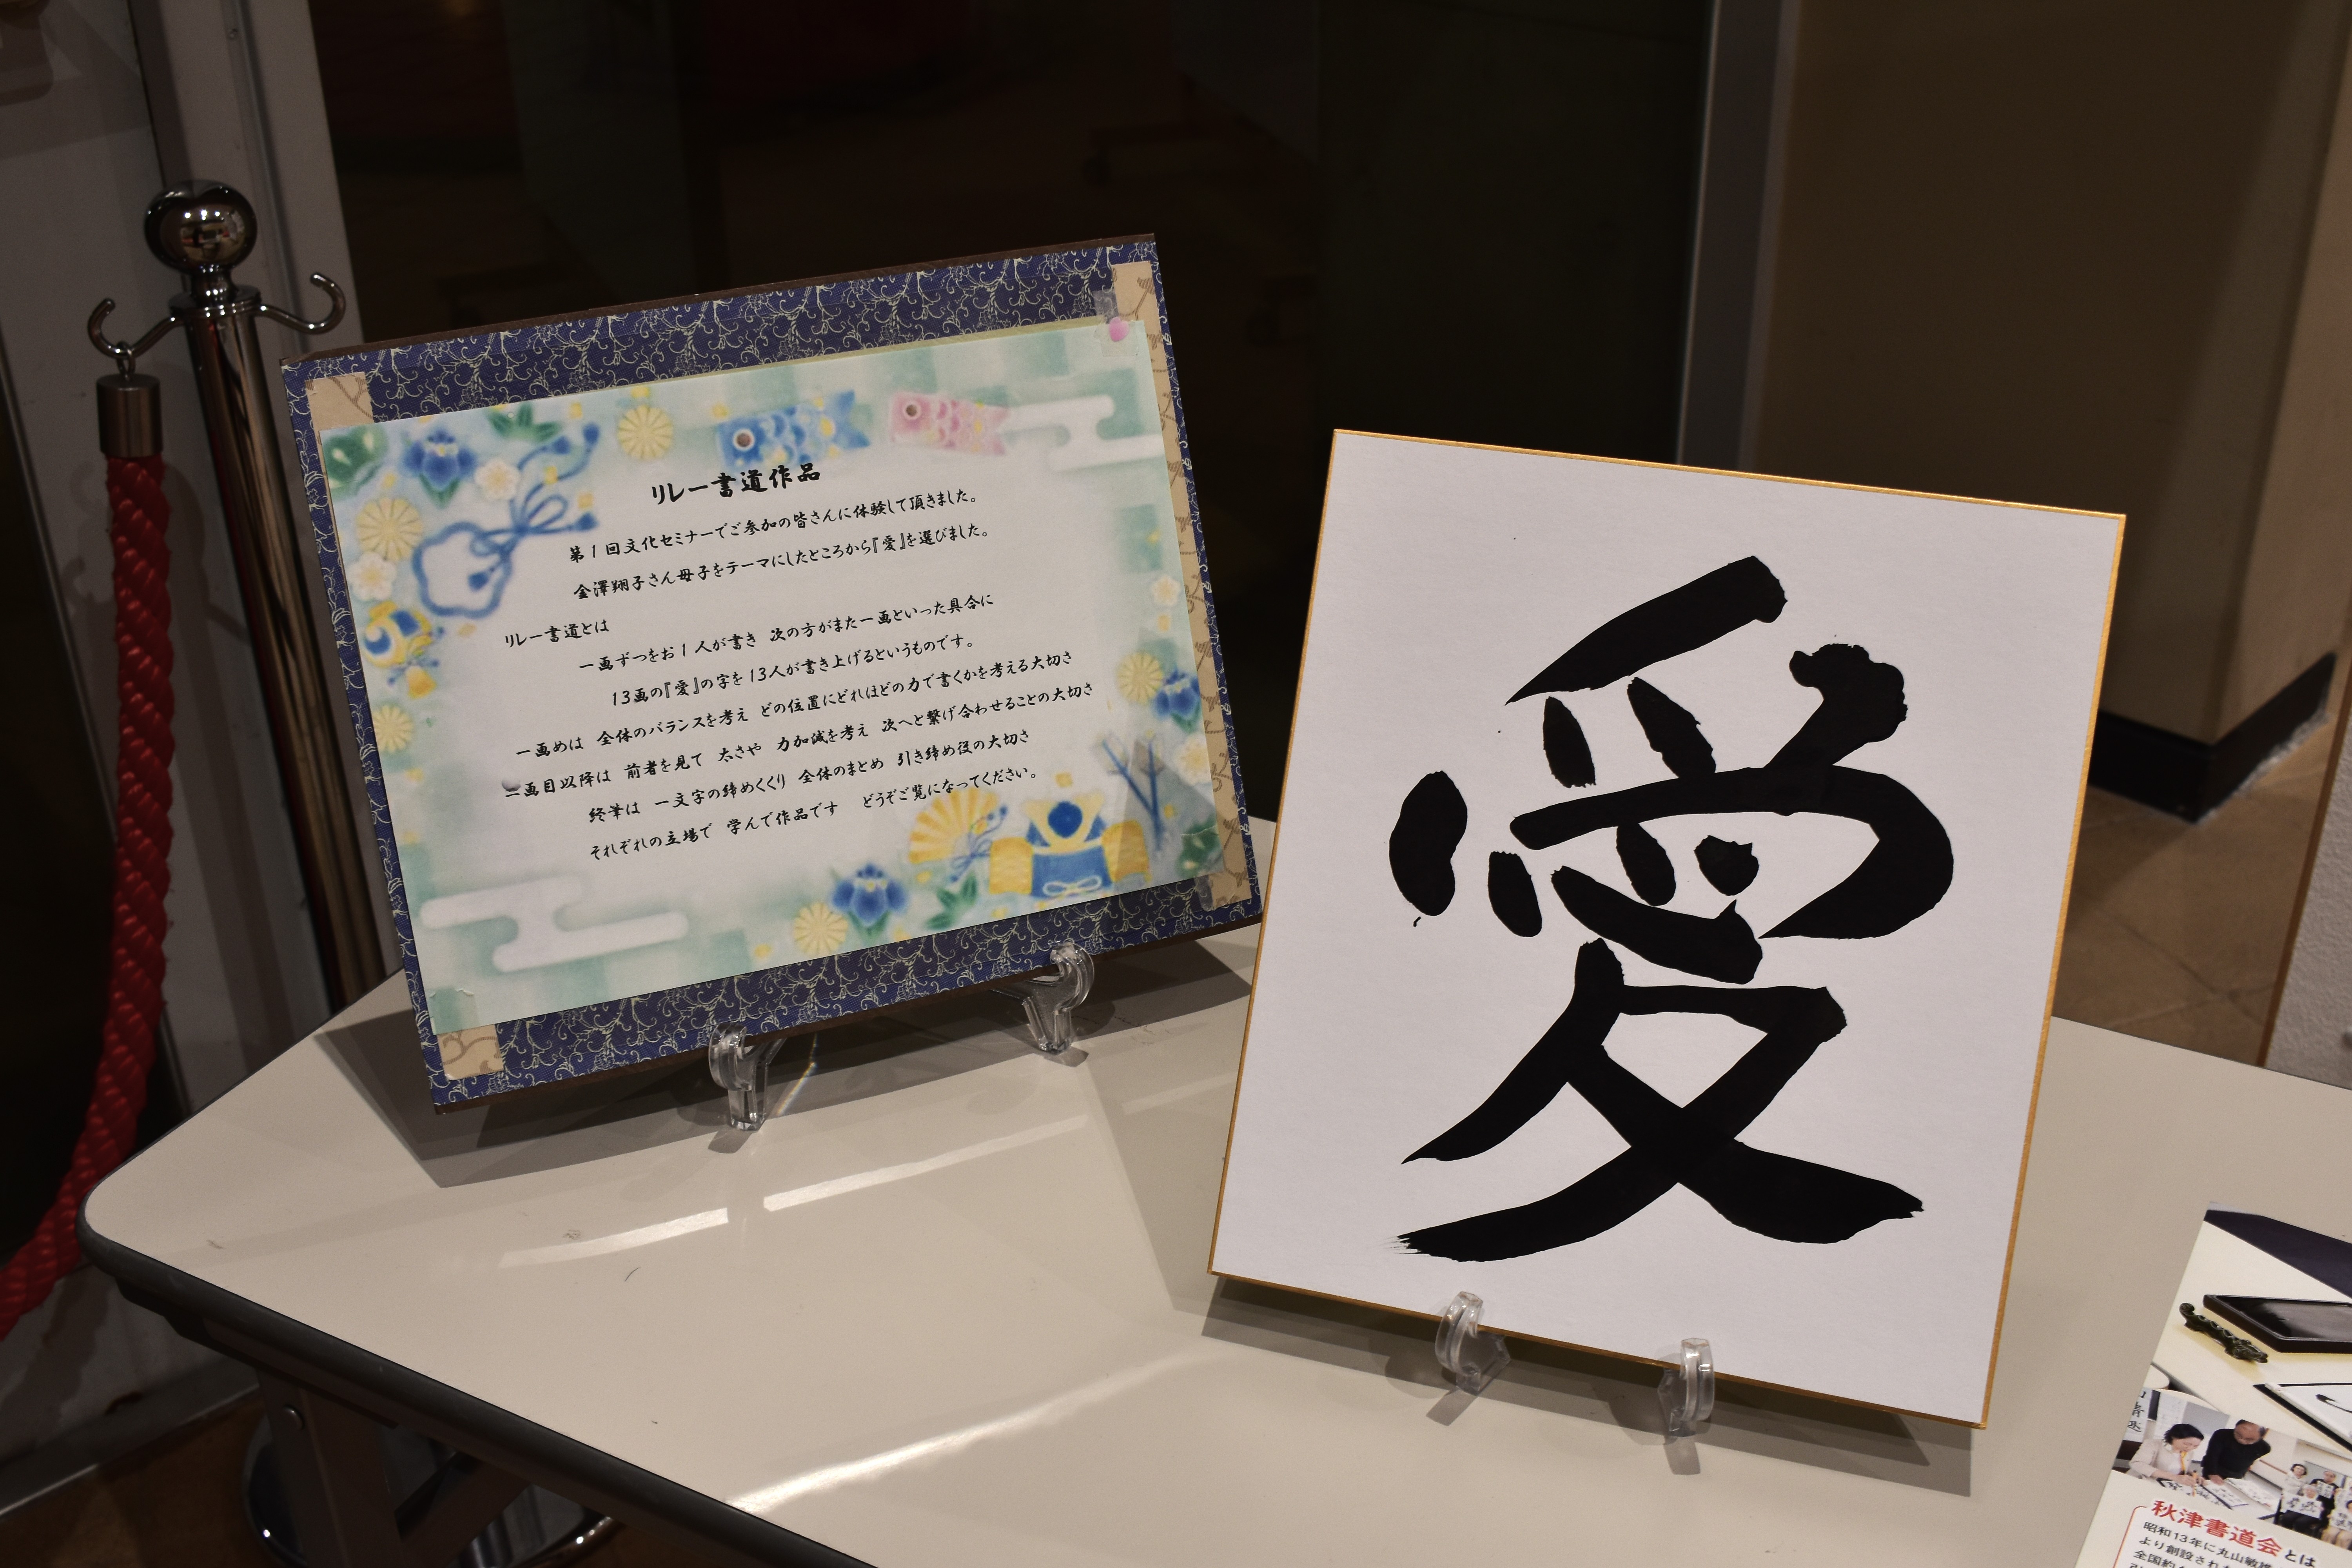 リレー書道作品
第1回文化セミナーでご参加の皆さんに体験して頂きました。
金澤翔子さん母子をテーマにしたところから『愛』を選びました。
リレー書道とは
一画ずつをお1人が書き 次の方がまた一画といった具合に
13画の『愛』の字を13人が書き上げるというものです。
一画めは 全体のバランスを考え どの位置にどれほどの力で書くかを考える大切さ
二画目以降は 前者を見て 太さや 力加減を考え 次へと繋げ合わせることの大切さ
終筆は 一文字の締めくくり 全体のまとめ 引き締め役の大切さ
それぞれの立場で 学んで作品です どうぞご覧になってください。
愛
秋津書道会とは
昭和13年に丸山敏雄
より創設され
全国約